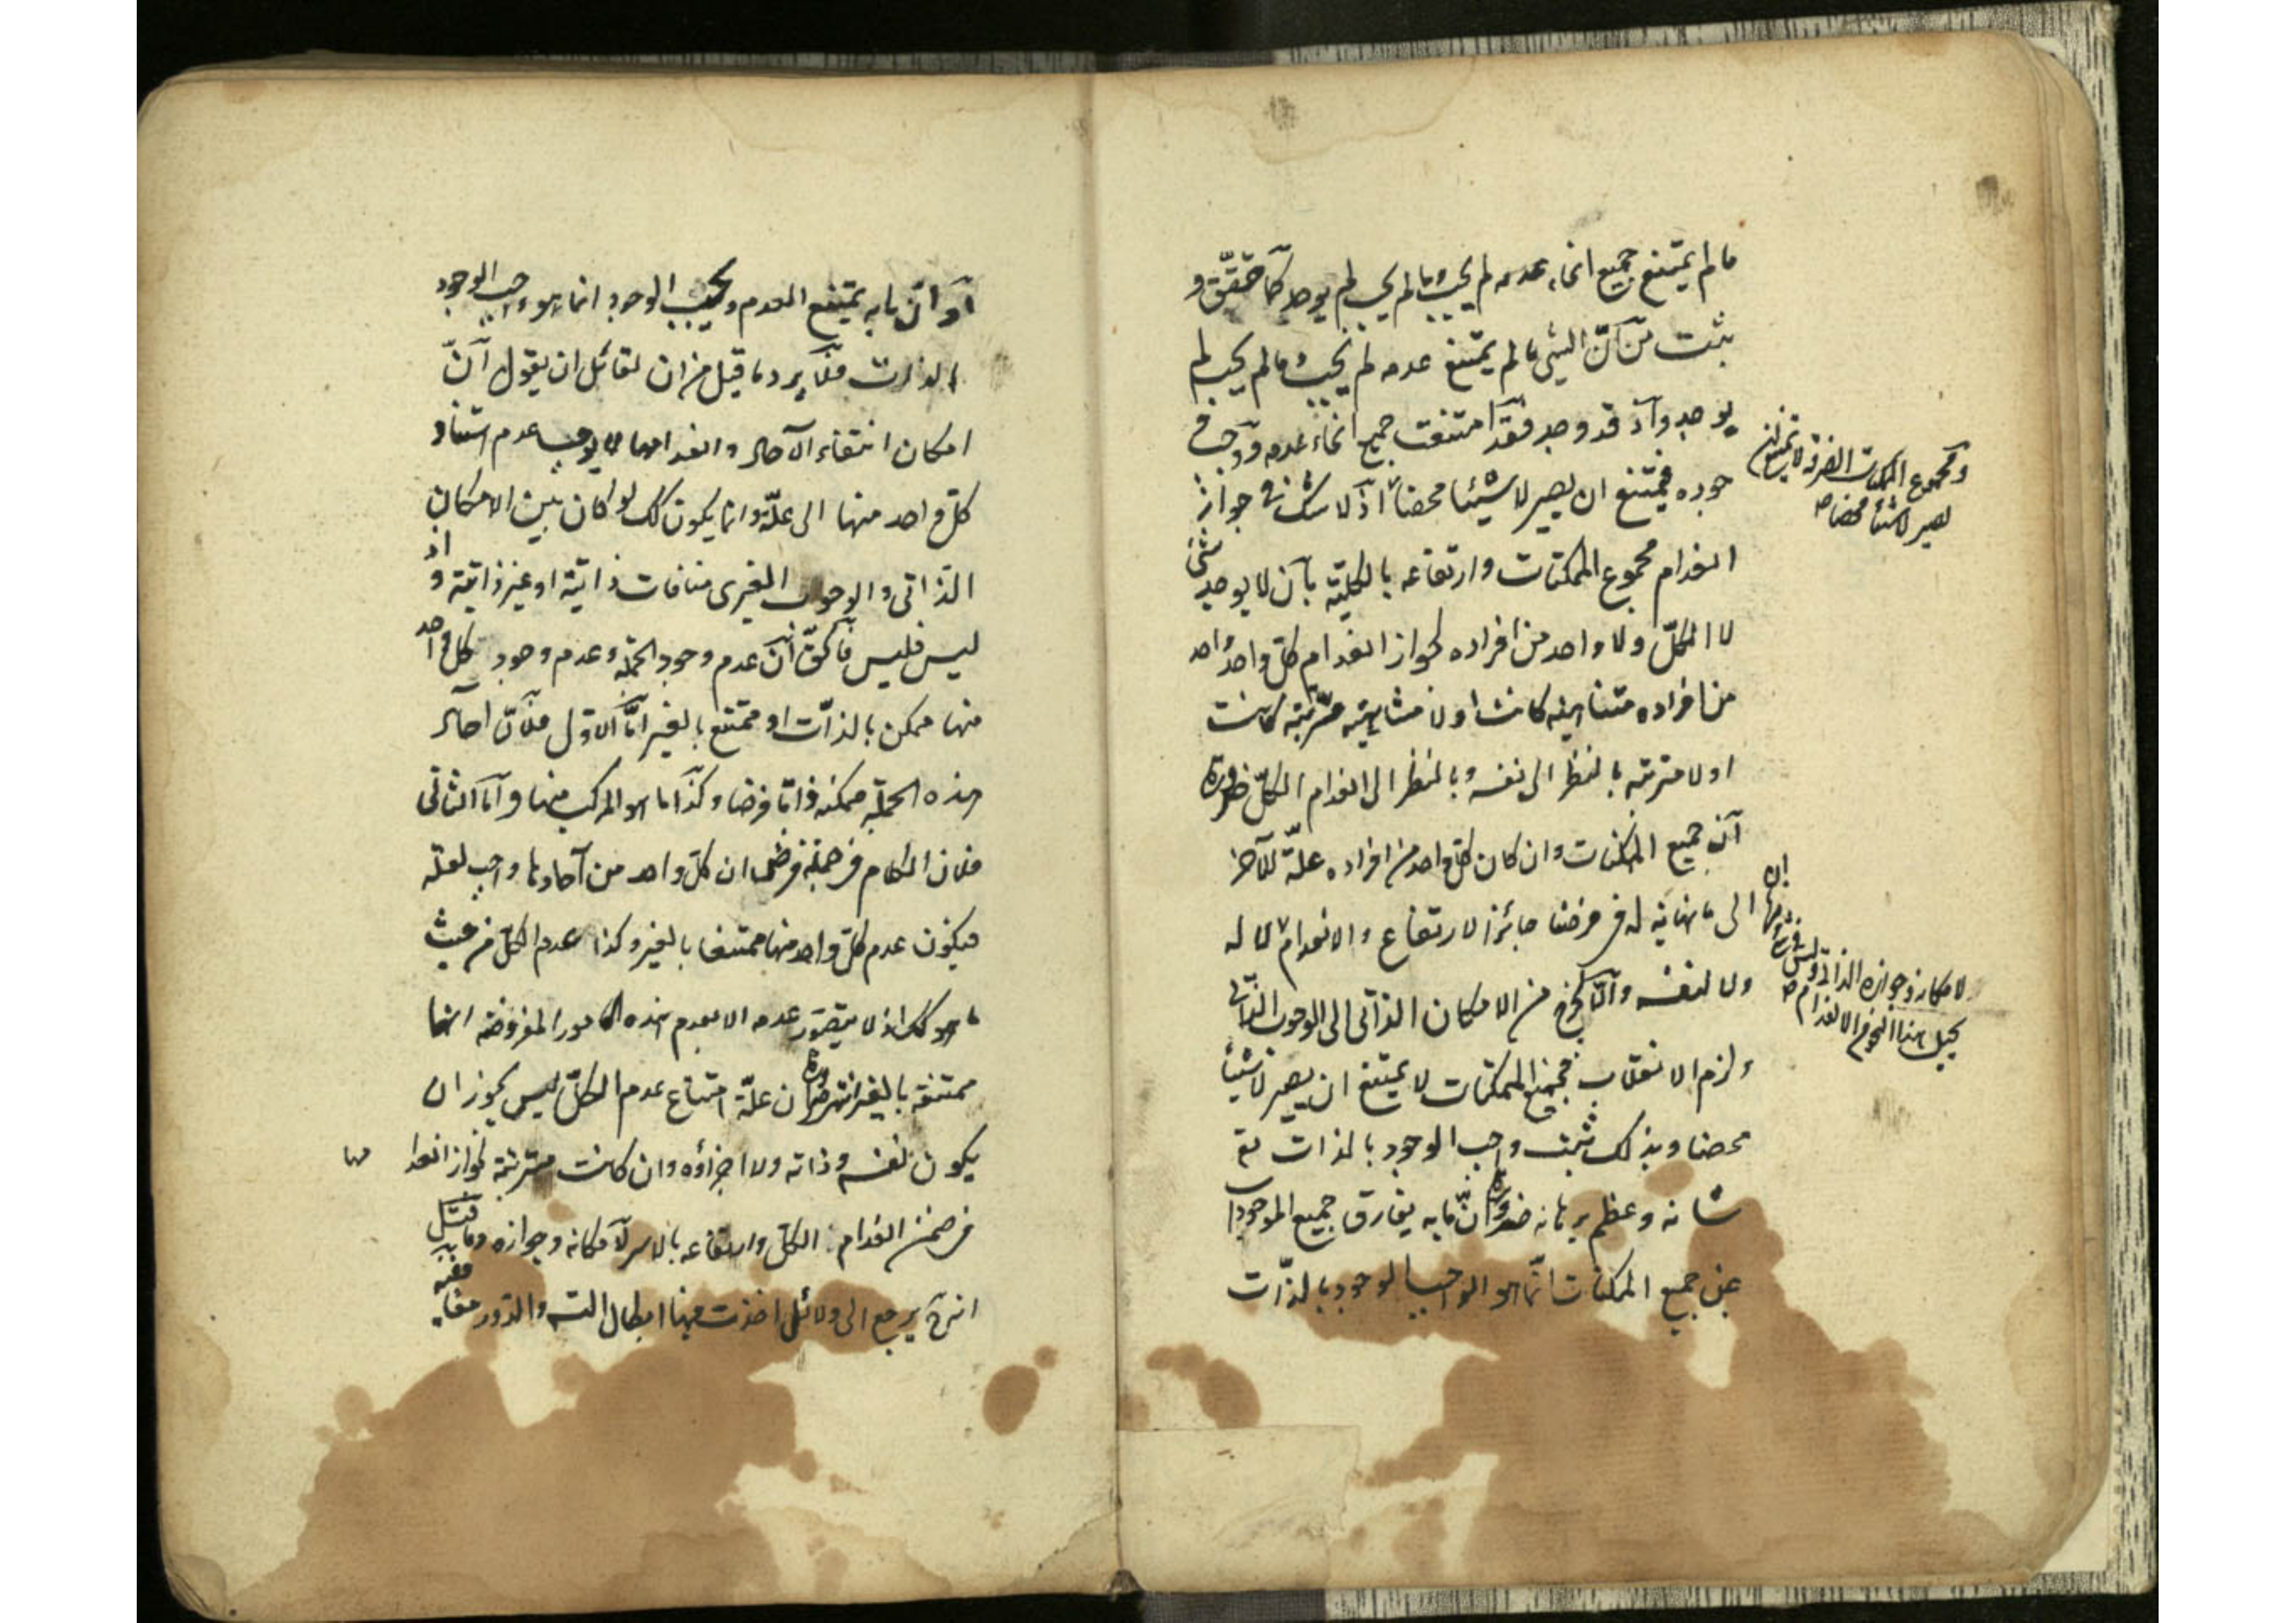 ما لم يمتنع جميع انحاء عدمه لم يجب وما لم يجب لم يوجد كما حقق و
ثبت من ان الشي ما لم يمتنع عدمه لم يجب وما لم يجب لم
يوجد واذ قد وجد فقد امتنعت جميع انحاء عدمه ووجب و
جوده فيمتنع ان يصير لا شيئا محضا اذ لا شك في جواز
ومجموع الممكنات الصرفة لا يمتنع ان
يصير لا شيئا محضا صح
انعدام مجموع الممكنات وارتفاعه بالكلية بان لا يوجد شئ
لا الكل ولا واحد من افراده لجواز انعدام كل واحد واحد
من افراده متناهية كانت او لا متناهية مترتبة كانت
او لا مترتبة بالنظر الى نفسه وبالنظر الى انعدام الكل ضرورة
ان جميع الممكنات وان كان كل واحد من افراده علة للآخر
الى ما نهاية له في فرضنا جائز الارتفاع والانعدام لا له
ولا لنفسه والا لخرج من الامكان الذاتي الى الوجوب الذاتي
لامكانه وجوازه الذاتي وليس
يحيل هذا النحو من الانعدام صح
ولزم الانقلاب فجميع الممكنات لا يمتنع ان يصير لا شيئا
محضا وبذلك ثبت واجب الوجود بالذات تع
شانه وعظم برهانه ضرورة ان ما به يفارق جميع الموجودات
عن جميع الممكنات انما هو الواجب الوجود بالذات
او ان ما به يمتنع العدم ويجب الوجود انما هو واجب الوجود
بالذات فلا يرد ما قيل من ان لقائل ان يقول ان
امكان انتفاء الآحاد وانعدامها لا يوجب عدم استناد
كل واحد منها الى علة وانما يكون كك لو كان بين الامكان
الذاتي والوجوب الغيري منافات ذاتية او غير ذاتية واذ
ليس فليس فالحق ان عدم وجود الجملة وعدم وجود كل واحد
منها ممكن بالذات او ممتنع بالغير اما الاول فلان آحاد
هذه الجملة ممكنة ذاتا فرضا وكذا ما هو المركب منها واما الثاني
فلان الكلام في جملة فرض ان كل واحد من آحادها واجب لعلة
فيكون عدم كل واحد منها ممتنعا بالغير وكذا عدم الكل من حيث
هو كك اذ لا يتصور عدمه الا بعدم هذه الامور المفروضة انها
ممتنعة بالغير انتهى ضرورة ان علة امتناع عدم الكل ليس يجوز ان
يكون نفسه وذاته ولا اجزاؤه وان كانت مترتبة لجواز انعدامها
في ضمن انعدام الكل وارتفاعه بالاسر لامكانه وجوازه وما قيل
انه يرجع الى دلائل اخذت منها ابطال التسـ والدور ففيه